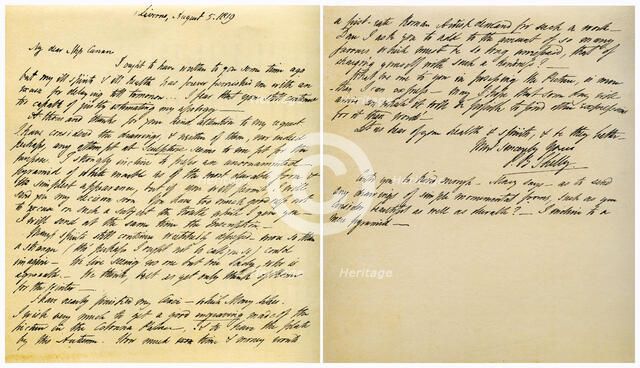 Livorno, August 5. 1819
My dear Miss Curran
I ought to have written to you some time ago
but my ill spirits & ill health has forever furnished me with an
excuse for delaying till tomorrow... I fear that you still continue
to capable of justly estimating my apology.
A thousand thanks for your kind attention to my request
I have considered the drawings, & neither of them, nor indeed
perhaps, any attempt at Sculpture seems to me fit for the
purpose. I strongly incline to prefer an unornamented
pyramid of white marble as of the most durable form &
the simplest appearance, but if you will permit I will
send you my decision soon. You have too much good
on such a subject the trouble which I give you
I will send at the same time the inscription
Mary's spirits still continue wretchedly depressed more so than
a stranger (tho' perhaps I ought not to call you so) could
imagine We like seeing no one but one Lady, who is
agreeable. We think, but as yet only think of Rome
for the Winter
I have nearly finished my Cenci which Mary likes.
I wish very much to get a good engraving made of the
picture in the Colonna Palace, & to have the plate
by this Autumn. How much time & money would
a first-rate Roman Artist demand for such a work
Dare I ask you to add to the amount of so many
favours which must be so long unrepaid, that of
charging yourself with such a kindness?
What we owe to you in possessing the Picture, is more
than I can express. may I hope that some day will
to find other expressions
for it than words
Let us hear of your health & spirits, & be they better
Most Sincerely Yours
P. B. Shelley
Will you be kind enough Mary says as to send
any drawings of simple monumental forms, such as you
consider beautiful as well as durable? I incline to a
pyramid
Heritage Images